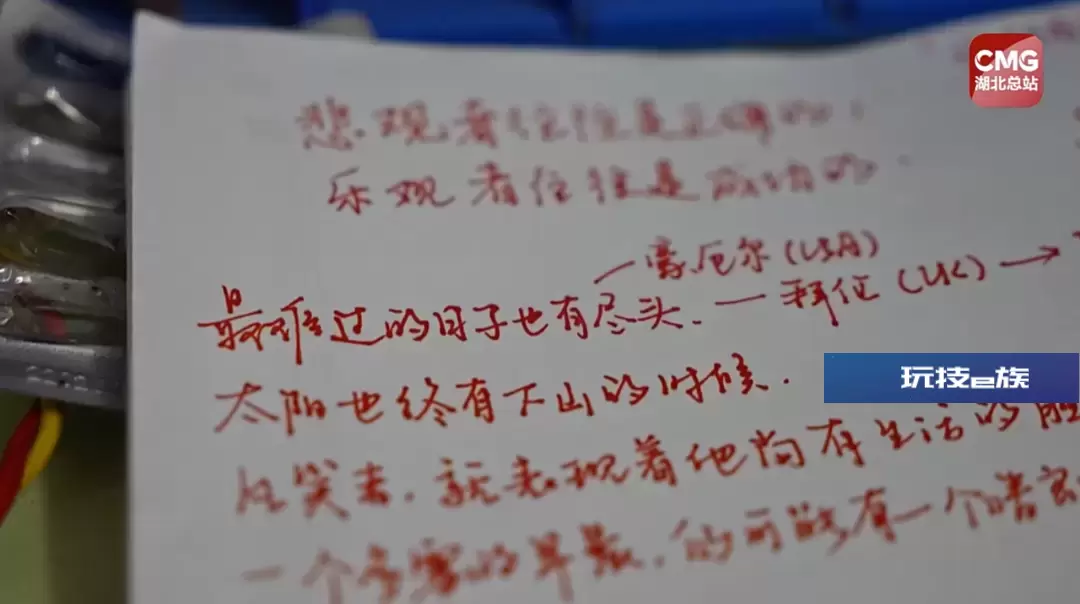 CMG
湖北总站
悲观者往往是正确的,
乐观者往往是成功的.
豪厄尔(USA)
最难过的日子也有尽头. — 拜伦(UK) →
玩技e族
太阳也终有下山的时候.
从笑来, 就表现着他尚有生活的能
一个多雾的早晨, 的可能有一个晴